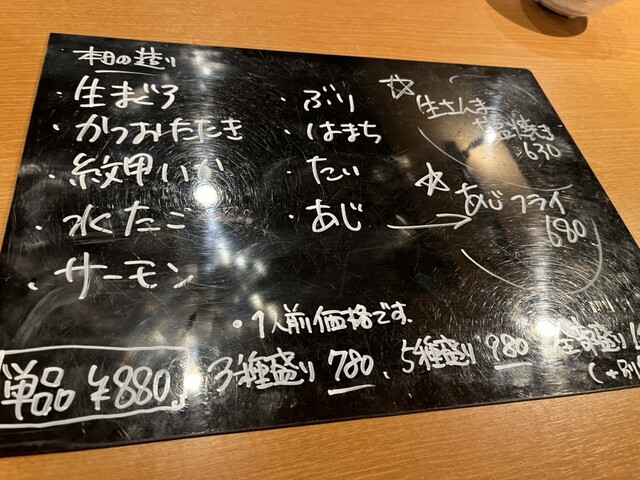 本日の造り
・生まぐろ
・かつおたたき
・紋甲いか
・水たこ
・サーモン
・ぶり
・はまち
・たい
・あじ
☆生さんま
塩焼き
630
☆あじフライ
680
・1人前価格です.
単品 ¥880
3種盛り 780、5種盛り 980